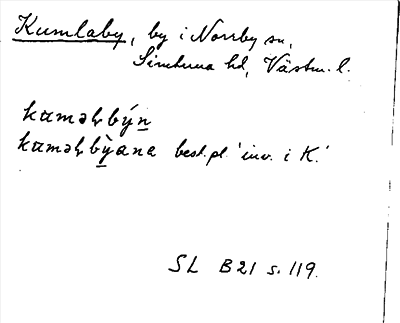 Kumlaby, by i Norrby sn,
Simtuna hd, Västm. l.
kɯməⱨbýn̲
kɯməⱨbỳ̲ana best. pl. 'inv. i K.'
SL B21 s. 119.